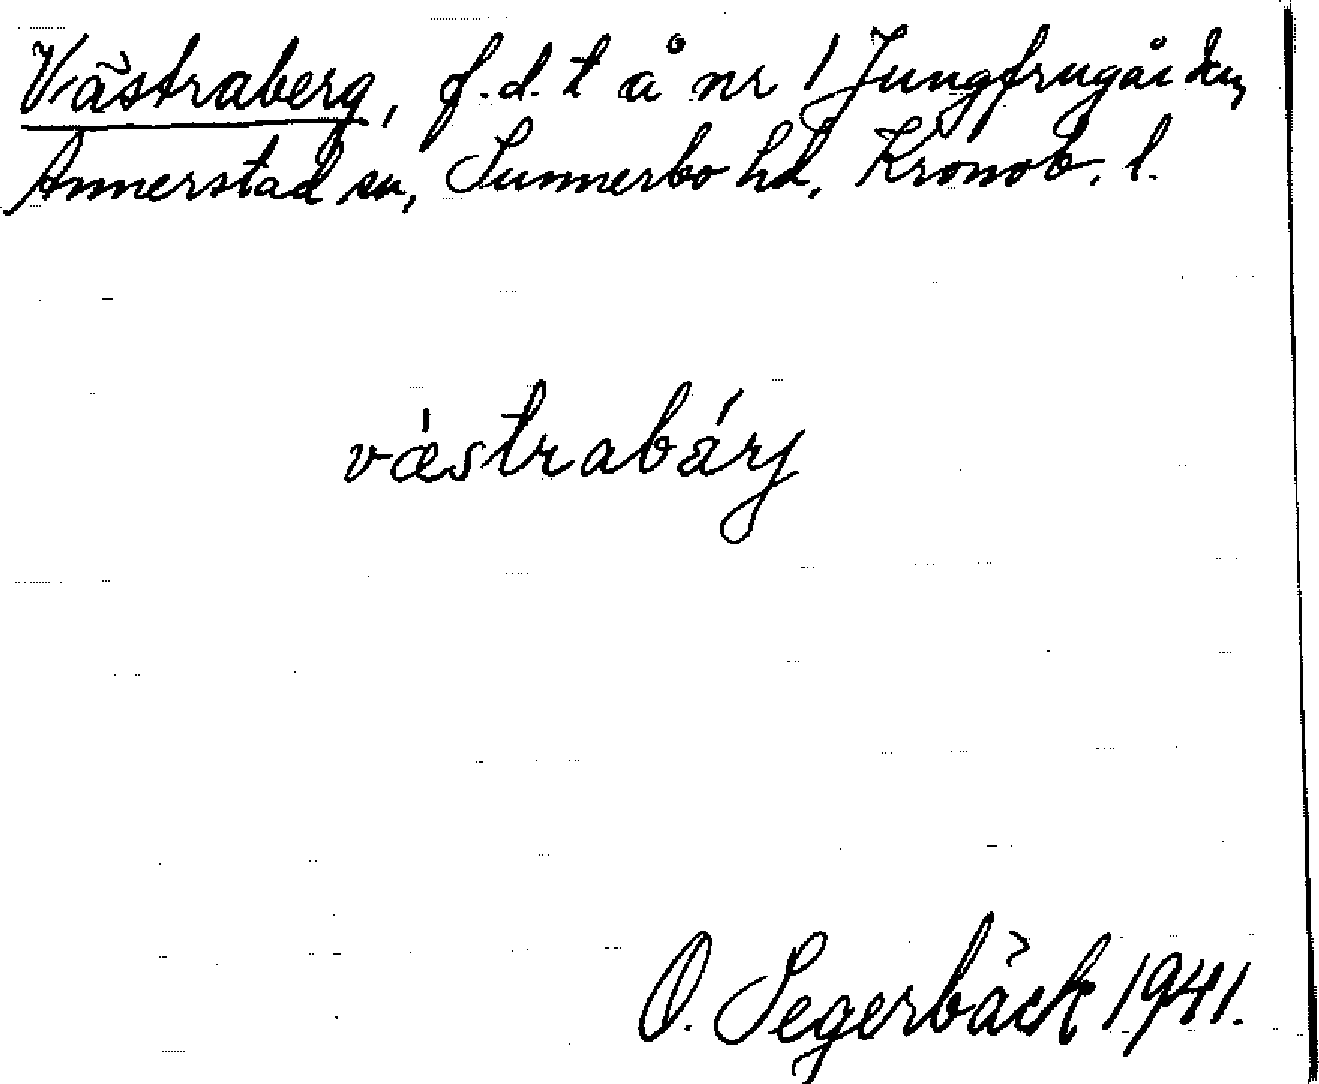 Västraberg, f.d. t å nr 1 Jungfrugården,
Annerstad sn, Sunnerbo hd, Kronob. l.
västrabárj
O. Segerbäck 1941.